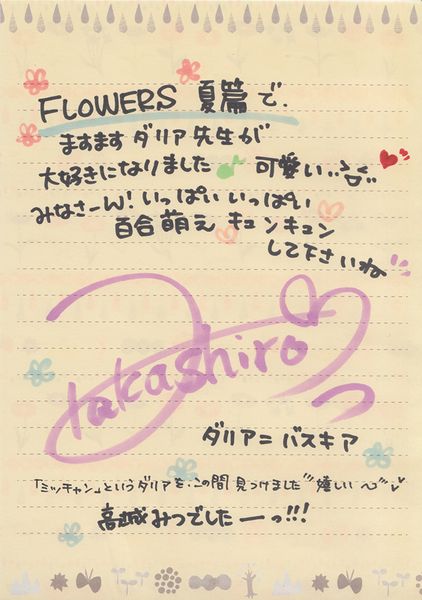 FLOWERS 夏篇 で、
ますます ダリア先生が
大好きになりました 可愛い‥
みなさーん! いっぱい いっぱい
百合萌え キュンキュン
して下さいね
takashiro
ダリア=バスキア
「ミッチャン」というダリアを、この間見つけました 嬉しい〜
高城みつでしたーっ!!!